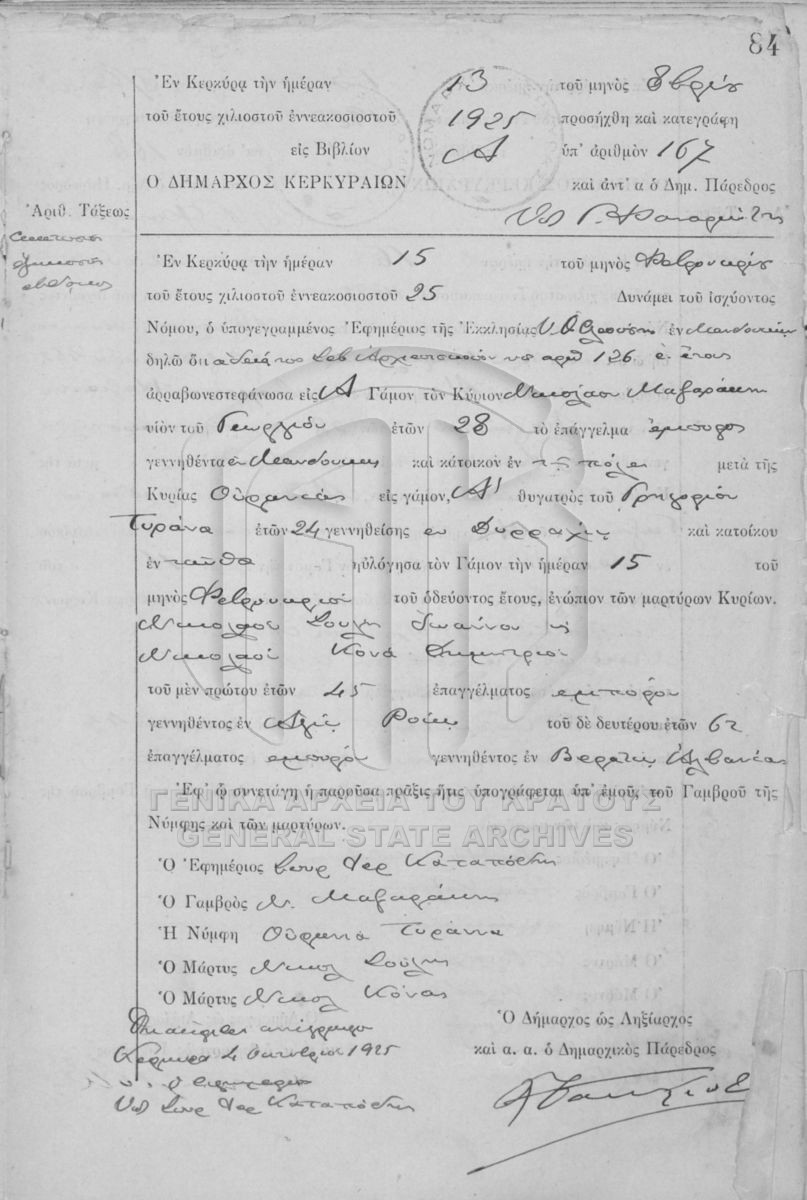 84
Ἐν Κερκύρᾳ τὴν ἡμέραν 13 τοῦ μηνὸς 8βρίου
τοῦ ἔτους χιλιοστοῦ ἐννεακοσιοστοῦ 1925 προσήχθη καὶ κατεγράφη
εἰς Βιβλίον Α ὑπ' ἀριθμὸν 167
Ο ΔΗΜΑΡΧΟΣ ΚΕΡΚΥΡΑΙΩΝ καὶ ἀντ' α ὁ Δημ. Πάρεδρος
Ἀριθ. Τάξεως
ἑκατοστὸς
ἑξηκοστὸς
ἕβδομος
Ἐν Κερκύρᾳ τὴν ἡμέραν 15 τοῦ μηνὸς Φεβρουαρίου
τοῦ ἔτους χιλιοστοῦ ἐννεακοσιοστοῦ 25 Δυνάμει τοῦ ἰσχύοντος
Νόμου, ὁ ὑπογεγραμμένος Ἐφημέριος τῆς Ἐκκλησίας ἐν Μανδουκίῳ
δηλῶ ὅτι ἀδείᾳ του Σεβ Ἀρχιεπισκόπου υπ αριθ 126 ἐ. ἔτους
ἀρραβωνεστεφάνωσα εἰς Α Γάμον τὸν Κύριον Νικόλαον Μαζαράκην
υἱὸν τοῦ Γεωργίου ἐτῶν 28 τὸ ἐπάγγελμα ἔμπορος
γεννηθέντα ἐν Μανδουκίῳ καὶ κάτοικον ἐν τῇ πόλει μετὰ τῆς
Κυρίας Οὐρανίας εἰς γάμον, Α' θυγατρὸς τοῦ Γρηγορίου
Τυράνα ἐτῶν 24 γεννηθείσης εν Δυρραχίῳ καὶ κατοίκου
ἐνταῦθα ηὐλόγησα τὸν Γάμον τὴν ἡμέραν 15 τοῦ
μηνὸς Φεβρουαρίου τοῦ ὁδεύοντος ἔτους, ἐνώπιον τῶν μαρτύρων Κυρίων.
Νικολάου Σούλη Ἰωάννου κ
Νικολάου Κόνα Δημητρίου
τοῦ μὲν πρώτου ἐτῶν 45 ἐπαγγέλματος εμπόρου
γεννηθέντος ἐν τοῦ δὲ δευτέρου ἐτῶν 62
ἐπαγγέλματος εμπορου γεννηθέντος ἐν Βεράτι Ἀλβανίας
Ἐφ' ᾧ συνετάγη ἡ παροῦσα πρᾶξις ἥτις ὑπογράφεται ὑπ' ἐμοῦ, τοῦ Γαμβροῦ τῆς
ΓΕΝΙΚΑ ΑΡΧΕΙΑ ΤΟΥ ΚΡΑΤΟΥΣ
Νύμφης καὶ τῶν μαρτύρων.
GENERAL STATE ARCHIVES
Ὁ Ἐφημέριος Σπυρ Ιερ Καταπόδης
Ὁ Γαμβρὸς Ν. Μαζαράκης
Ἡ Νύμφη Οὐρανία Τυράννα
Ὁ Μάρτυς Νικολ Σούλης
Ὁ Μάρτυς Νικολ Κόνας
Ὁ Δήμαρχος ὡς Ληξίαρχος
Κέρκυρα 4 Οκτωβρίου 1925
καὶ α. α. ὁ Δημαρχικὸς Πάρεδρος
Ὁ Εφημεριος
Υπ Σπυρ Ιερ Καταπόδης